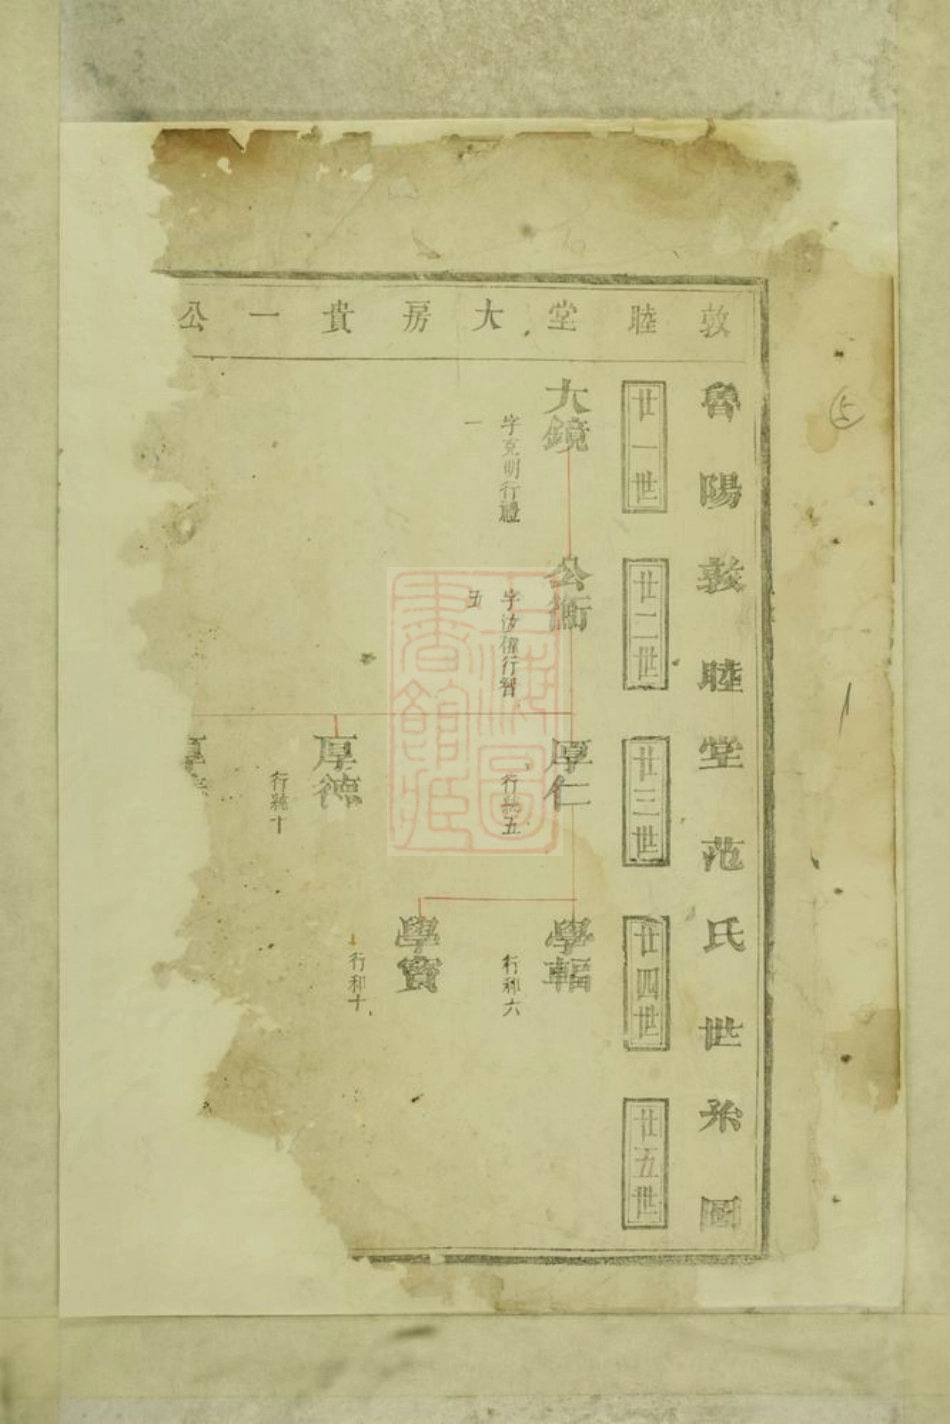 敦睦堂大房貴一公
魯陽敦睦堂范氏世系圖
廿一世
廿二世
廿三世
廿四世
廿五世
大鏡
字克明行禮
一
公衡
行智
五
厚仁
行 五
學輻
行和六
學寶
行和十
厚德
行 十
厚
上海圖書館藏